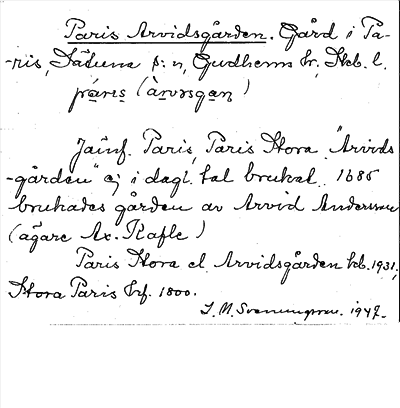 Paris Arvidsgården. Gård i Pa-
-ris, Sätuna s:n, Gudhems hr, Skb. l.
(àrvəsgaṇ)
Jämf. Paris, Paris Stora. "Arvids
-gården" ej i dagl. tal brukat. 1685
brukades gården av Arvid Andersson
(ägare Ax. Kafle)
Paris Stora el. Arvidsgården kb. 1931,
Stora Paris hrf. 1800.
1947.